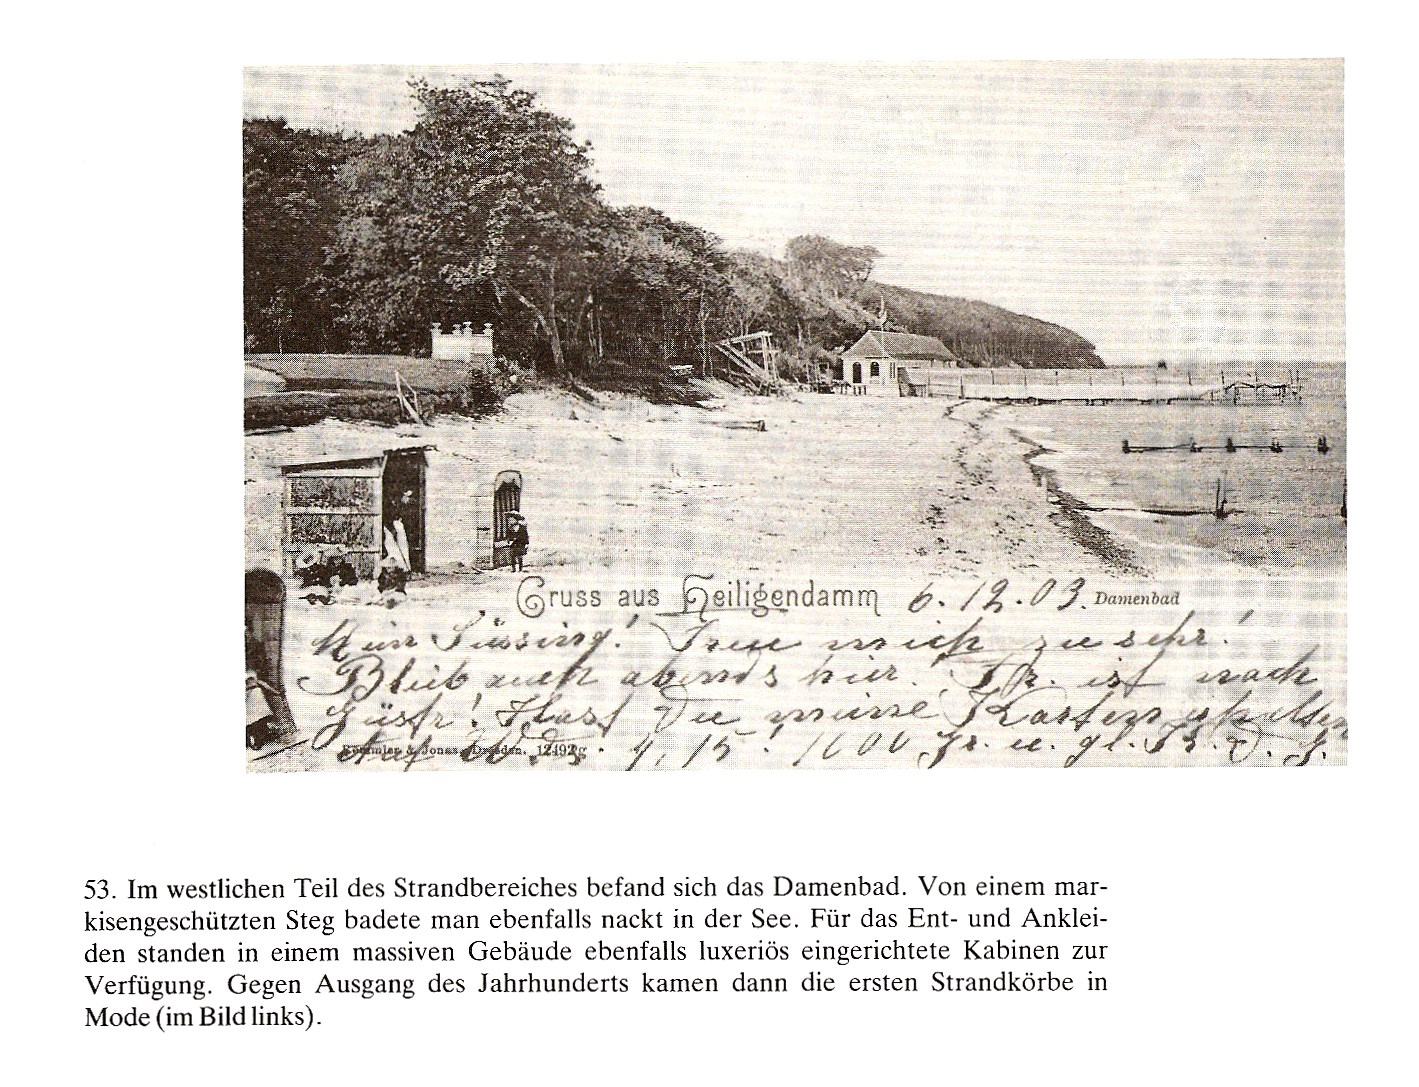 Gruss aus Heiligendamm 6.12.03. Damenbad
Mein Süssing! Freu mich zu sehr!
Bleib auch abends hier! Fr. ist nach
Güstr! Hast Du meine Karten erhalten
Römmler & Jonas, Dresden. 12492g
auf 4,15! 1000 Gr. u.
53. Im westlichen Teil des Strandbereiches befand sich das Damenbad. Von einem mar-
kisengeschützten Steg badete man ebenfalls nackt in der See. Für das Ent- und Anklei-
den standen in einem massiven Gebäude ebenfalls luxeriös eingerichtete Kabinen zur
Verfügung. Gegen Ausgang des Jahrhunderts kamen dann die ersten Strandkörbe in
Mode (im Bild links).